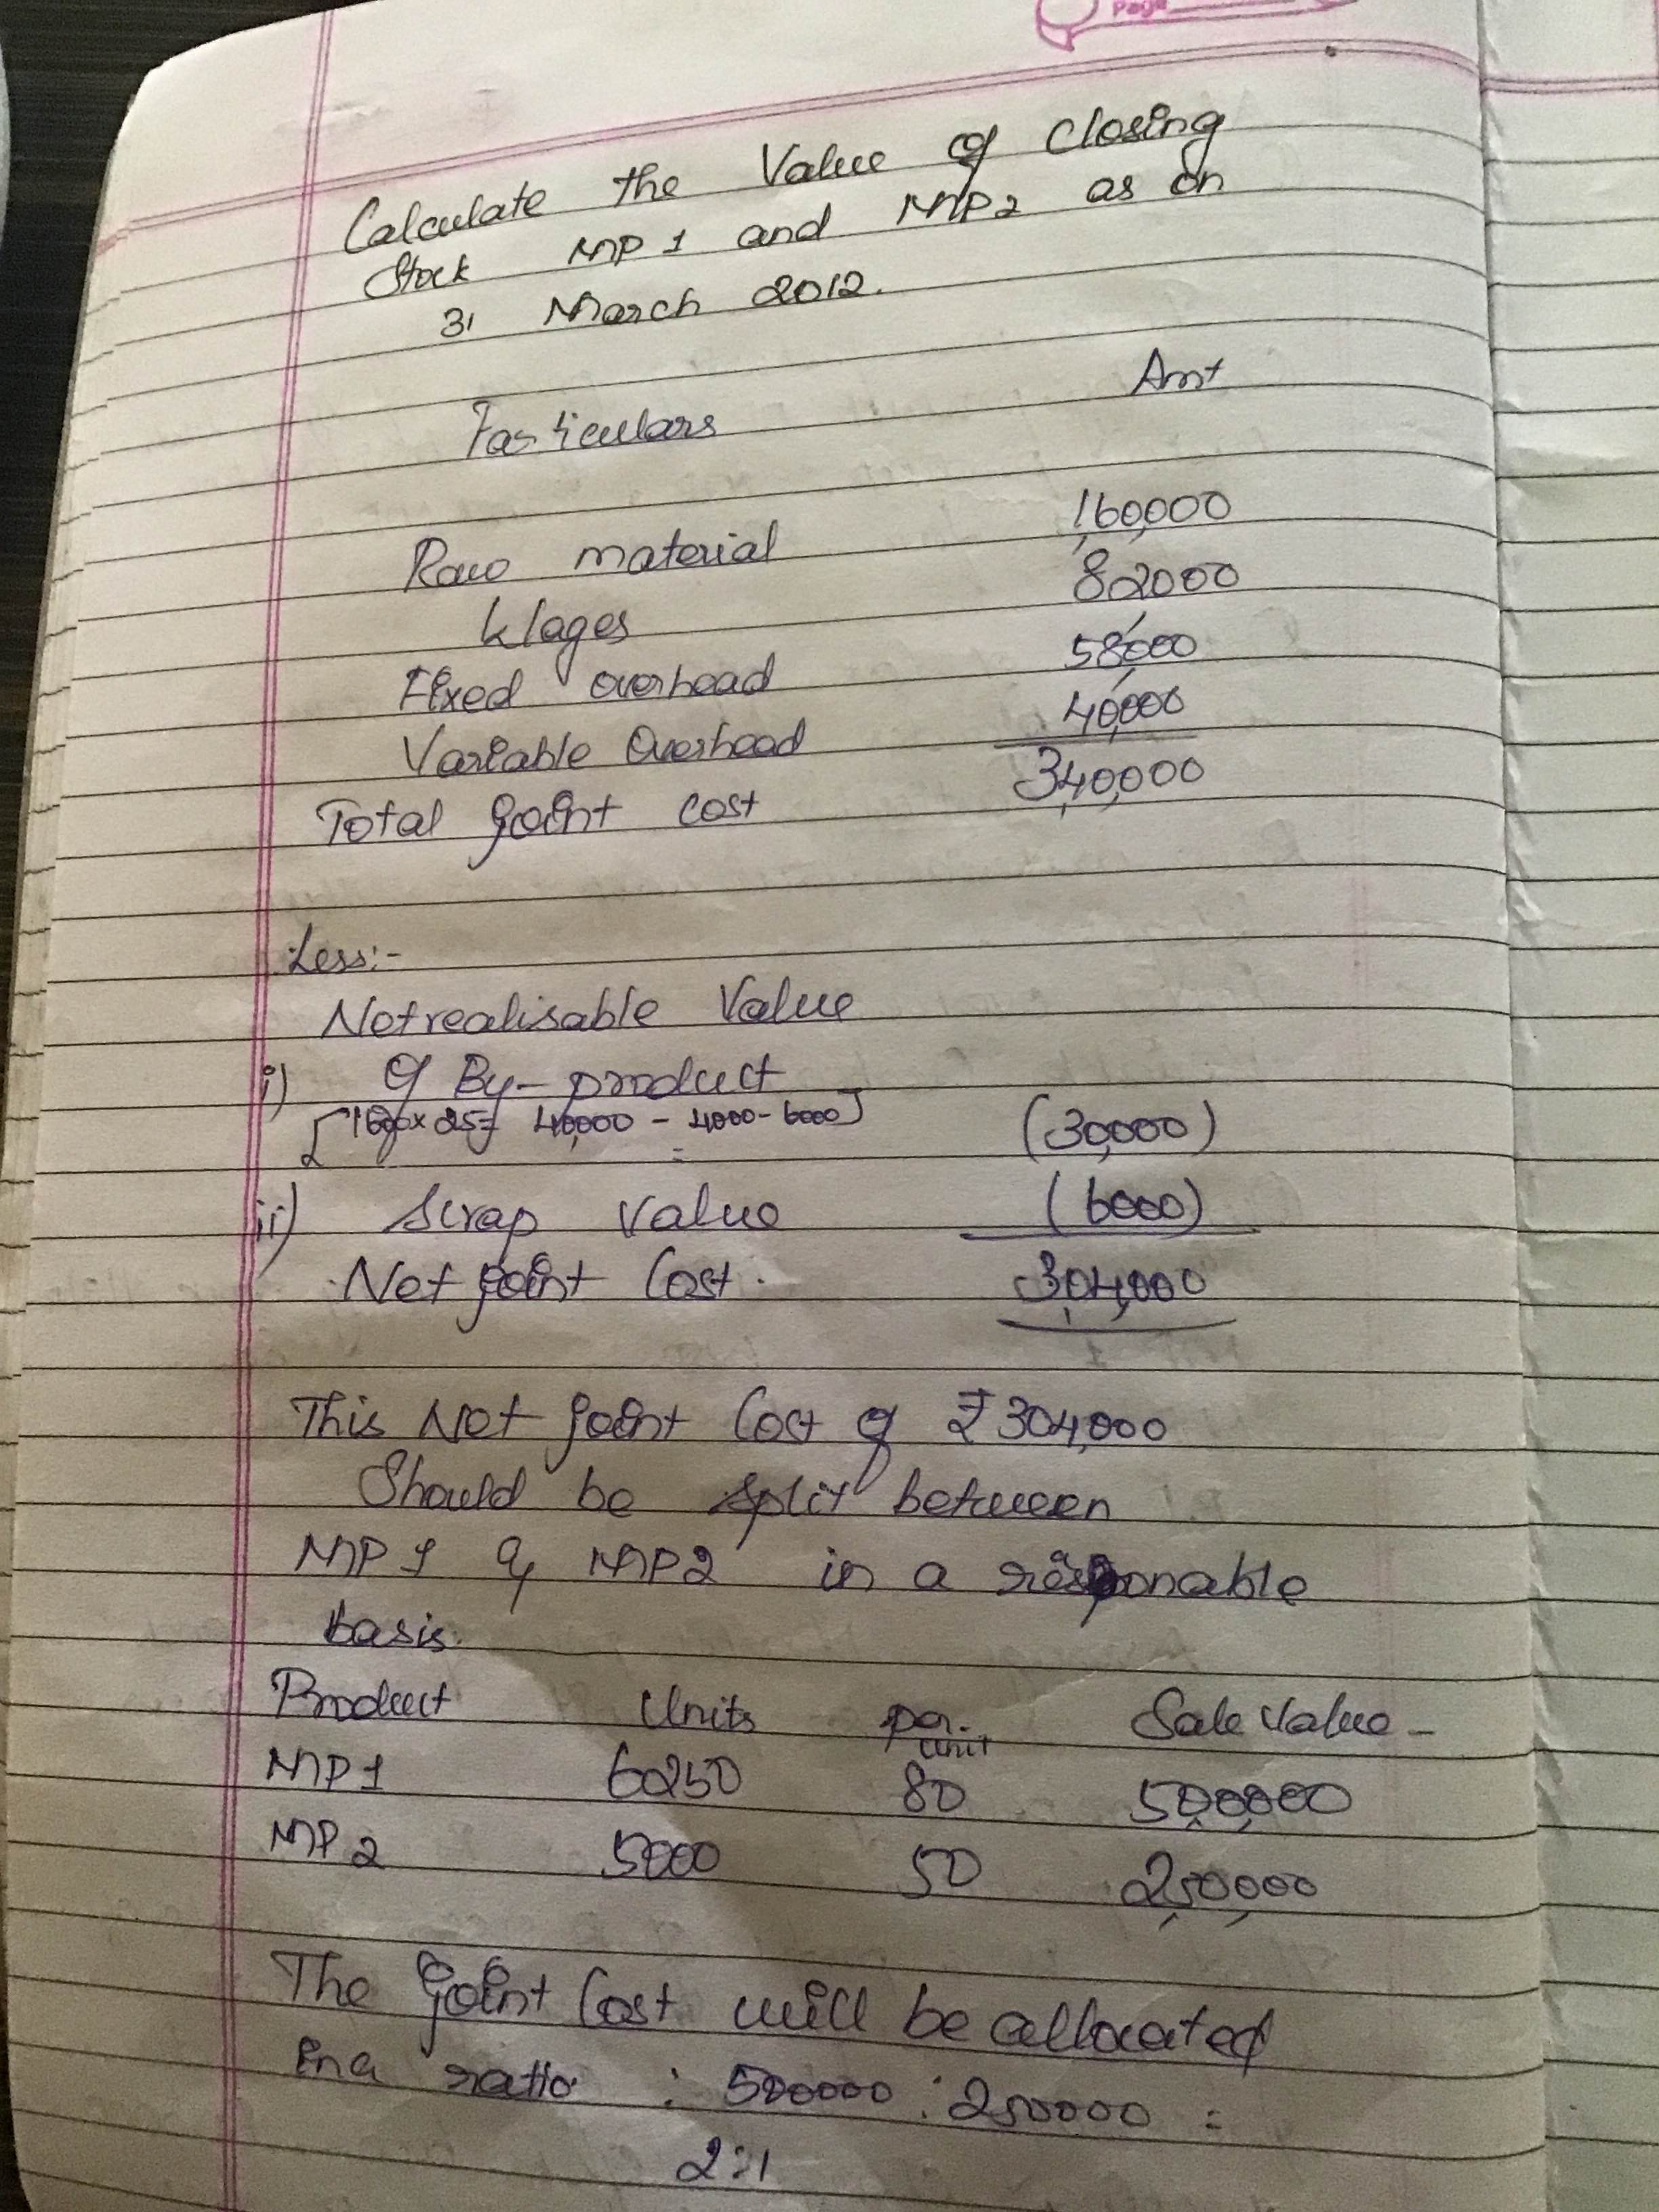 Page
Calculate the Value of Closing
Stock MP 1 and MP2 as on
31 March 2012.
Particulars Amt
Raw material 1,60,000
Wages 82000
Fixed overhead 58,000
Variable Overhead 40,000
Total joint cost 3,40,000
Less:-
Net realisable Value
i) Of By-product
[1600x25= 40,000 - 4000-6000] (30,000)
ii) Scrap Value (6000)
Net joint Cost. 3,04,000
This Net joint Cost of ₹ 304,000
Should be split between
MP1 & MP2 in a resonable
basis.
Product Units per unit Sale Value -
MP1 6250 80 5,00,000
MP2 5000 50 2,50,000
The joint Cost will be allocated
in a ratio : 500000 : 250000 =
2:1